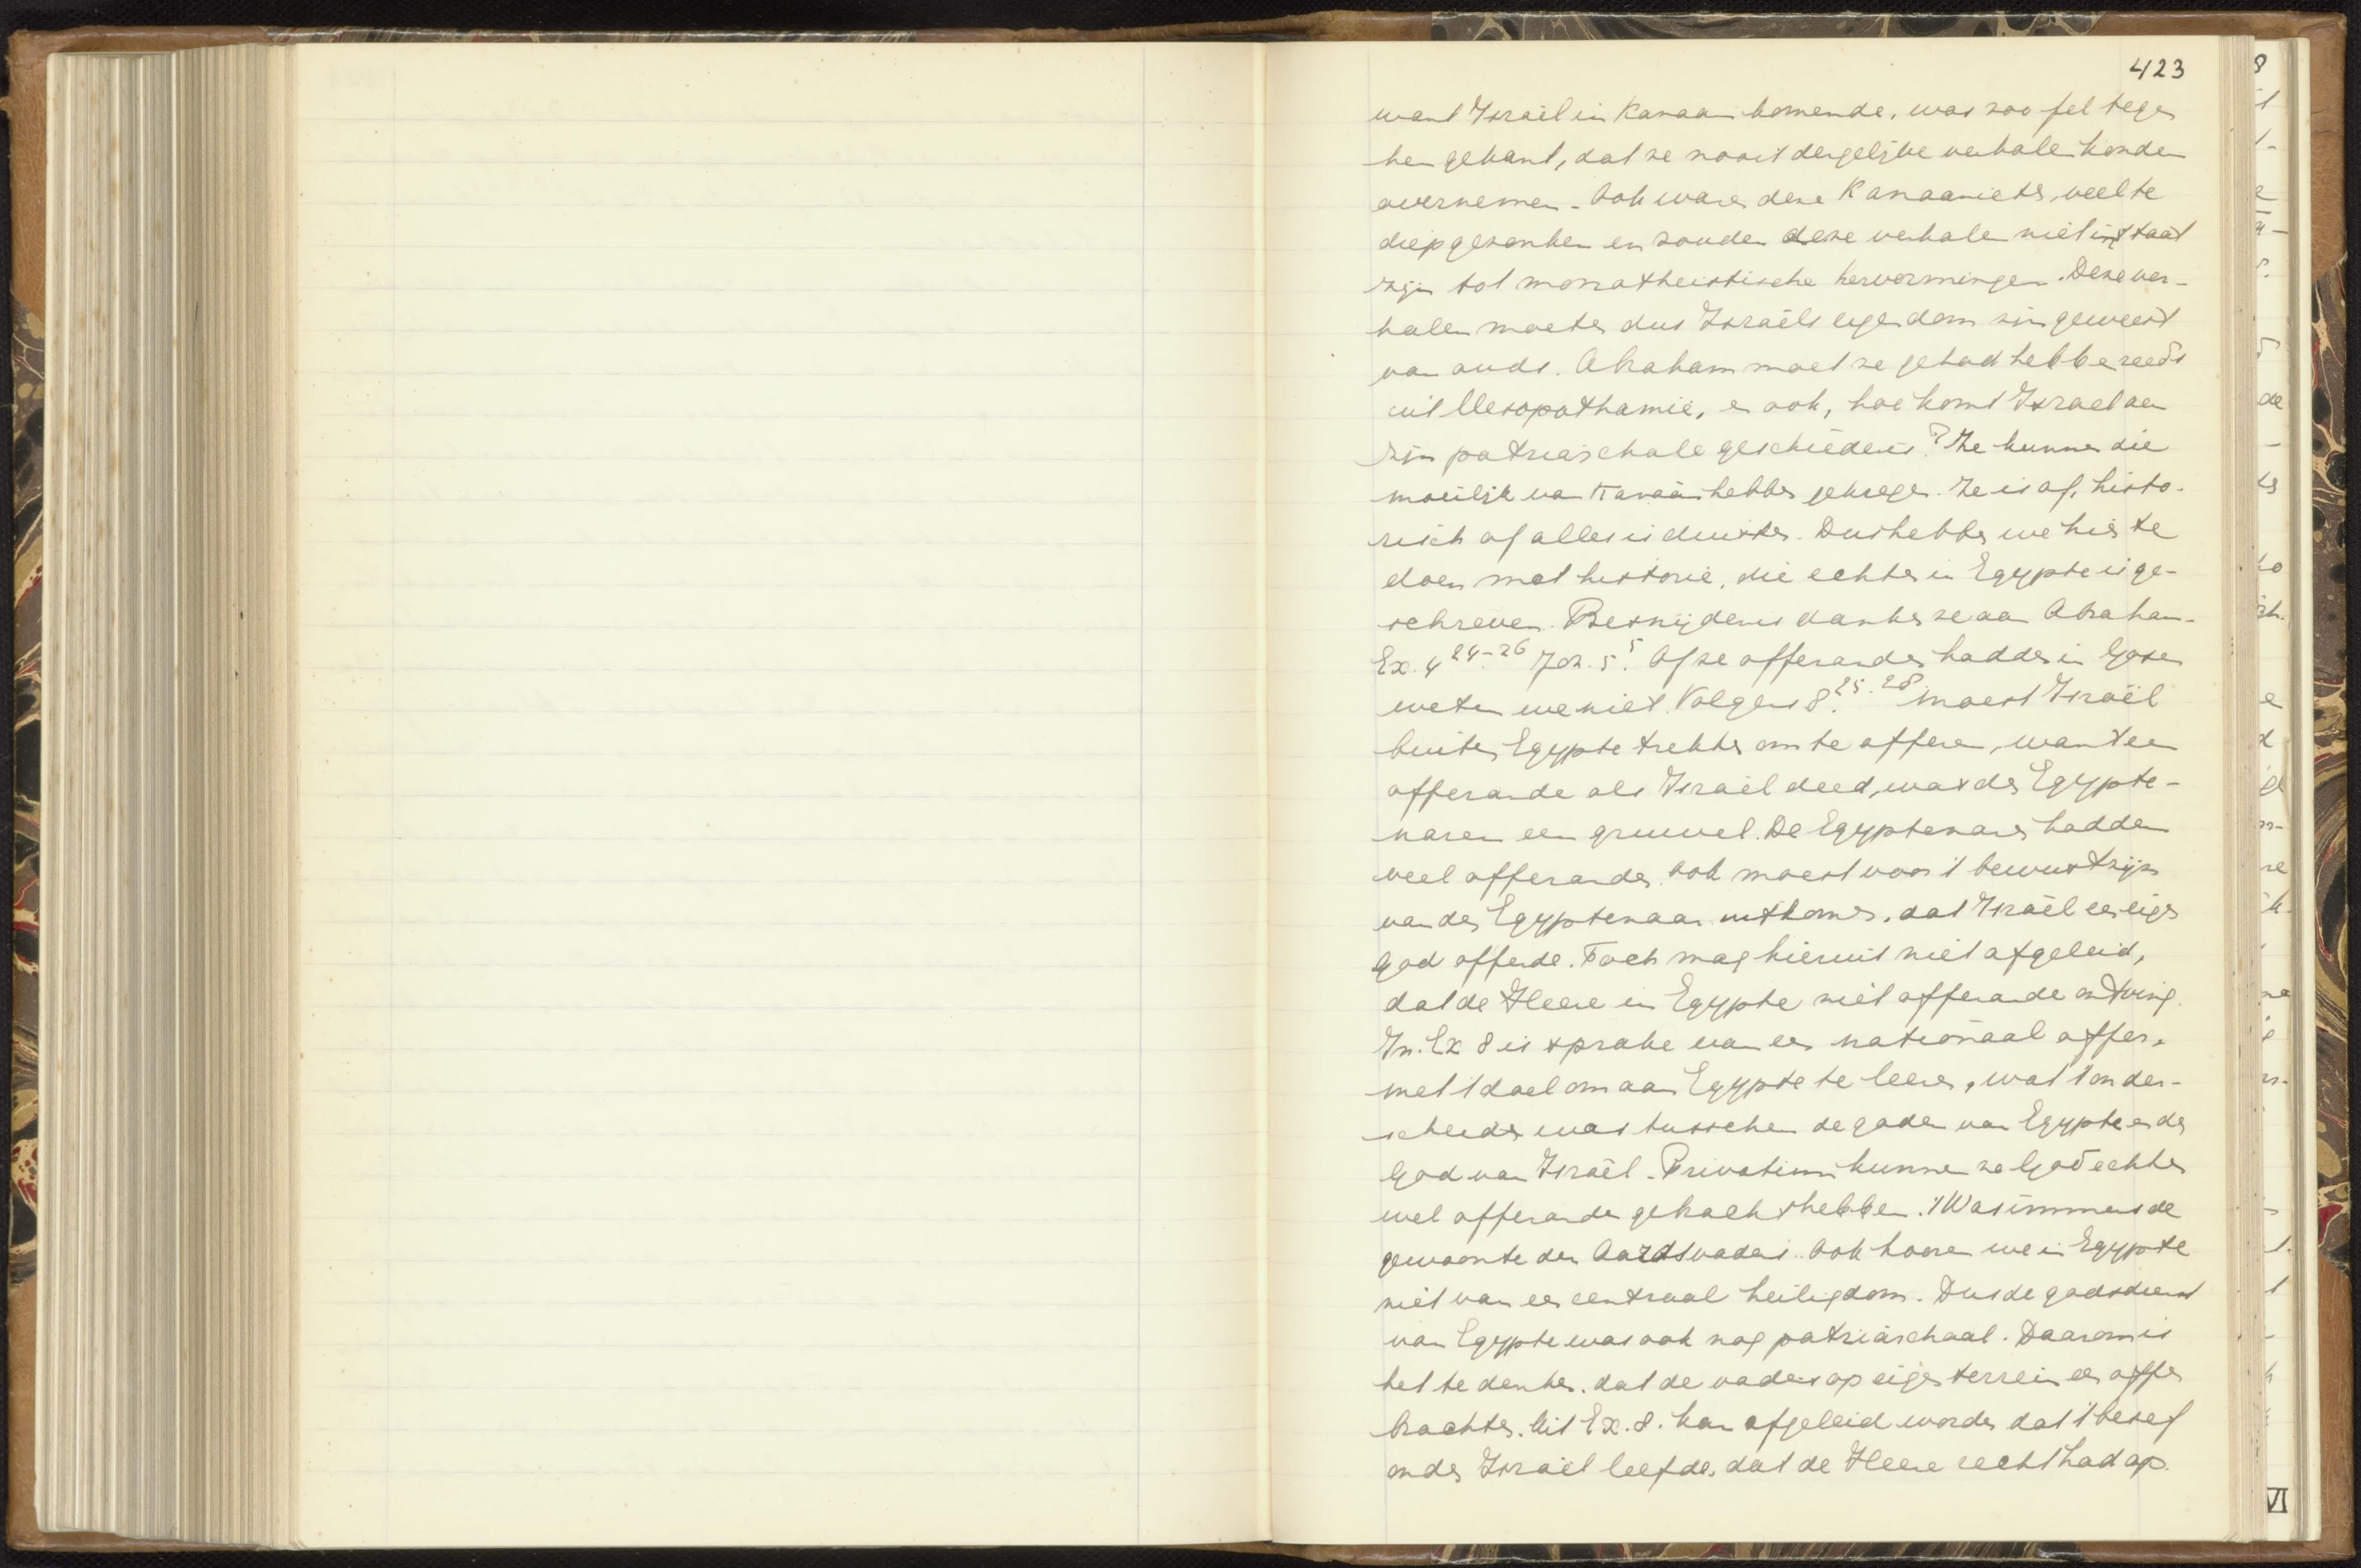 423
want Israël in Kanaan komende, was zoo fel tegen
hen gekant, dat ze nooit dergelijke verhalen konden
overnemen. Ook waren deze Kanaaniets, veel te
diep gezonken en zouden deze verhalen niet in staat
zijn tot monotheistische hervormingen. Deze ver-
halen moeten dus Israëls eigendom zijn geweest
van ouds. Abraham moet ze gehad hebben reeds
uit Mesopothamië, en ook, hoe komt Israel aan
zijn patriarchale geschiedenis? Ze kunnen die
moeilijk van Kanaän hebben gekregen. Ze is of, histo-
risch of alles is duister. Dus hebben we hier te
doen met historie, die echter in Egypte is ge-
schreven. Besnijdenis danken ze aan Abraham.
Ex. 4 24-26 Joz. 5 5. Of ze offeranden hadden in Gosen
weten we niet. Volgens 8 25.28 moest Israël
buiten Egypte trekken om te offeren, want een
offerande als Israël deed, was den Egypte-
naren een gruwel. De Egyptenaren hadden
veel offeranden. Ook moest voor 't bewustzijn
van den Egyptenaar uitkomen, dat Israël een eigen
God offerde. Toch mag hieruit niet afgeleid,
dat de Heere in Egypte niet offerande ontving.
In. Ex 8 is sprake van een nationaal offer,
met 't doel om aan Egypte te leeren, wat 't onder-
scheiden was tusschen de goden van Egypte en den
God van Israël. Privatim kunnen ze God echter
wel offeranden gebracht hebben. 't Was immers de
gewoonte der Aartsvaders. Ook hooren we in Egypte
niet van een centraal heiligdom. Dus de godsdienst
van Egypte was ook nog patriarchaal. Daarom is
het te denken, dat de vaders op eigen terrein een offer
brachten. Uit Ex. 8. kan afgeleid worden dat 't besef
onder Israël leefde, dat de Heere recht had op
VI